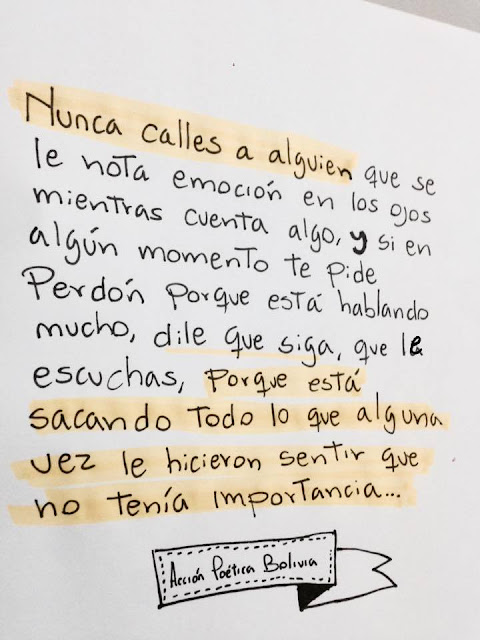 Nunca calles a alguien que se
le nota emoción en los ojos
mientras cuenta algo, y si en
algún momento te pide
Perdón porque está hablando
mucho, dile que siga, que le
escuchas, porque está
sacando todo lo que alguna
vez le hicieron sentir que
no tenía importancia...
Acción Poética Bolivia